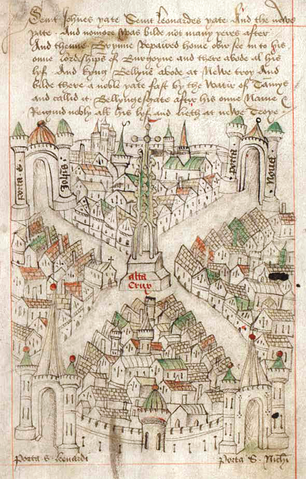 Seint Johnes yate Seint leonardes yate And the newe
yate . And nomore was bilde not many yeres after
And thenne Brynne Repaired home over see in to his
owne lordships of Burgoyne and there abode al his
lyf. And kyng Bellyne abode at Newe troy And
bilde there a noble yate fast by the Water of Tamys
and called it Bellyngesgate after his owne Name
nobly all his lyf and lieth at newe Troye
porta s Johis
Porta Nova
alta
Crux
Porta S leonardi
Porta S. Nichi